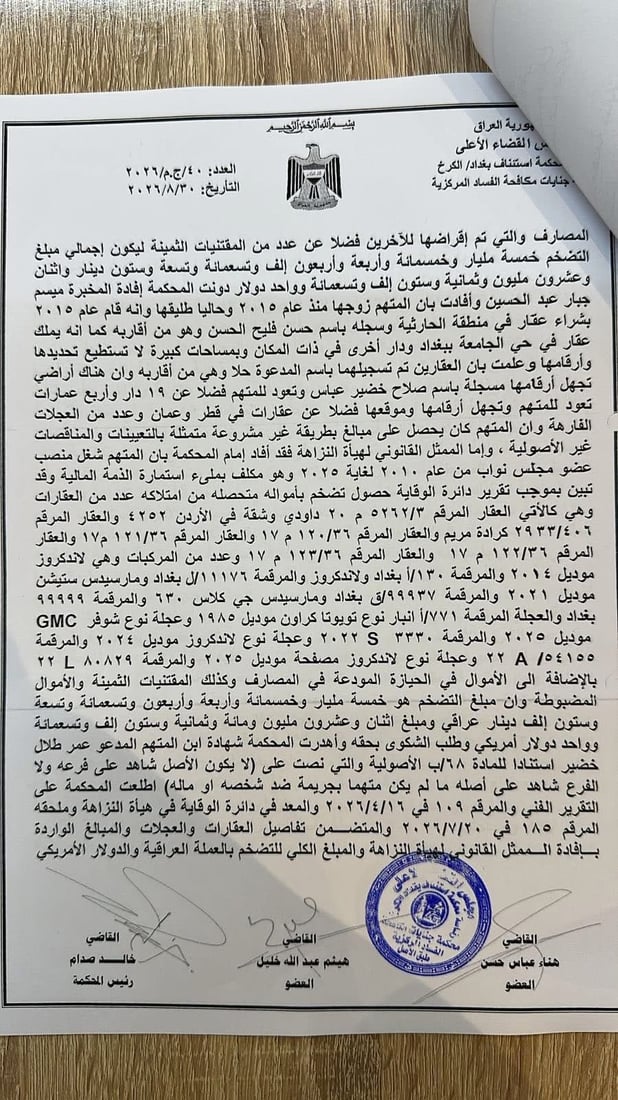 بسم الله الرحمن الرحيم
جمهورية العراق
مجلس القضاء الأعلى
محكمة استئناف بغداد/ الكرخ
جنايات مكافحة الفساد المركزية
العدد: ٤٠/ج.م/٢٠٢٦
التاريخ: ٢٠٢٦/٨/٣٠
المصارف والتي تم إقراضها للآخرين فضلا عن عدد من المقتنيات الثمينة ليكون إجمالي مبلغ
التضخم خمسة مليار وخمسمانة وأربعة وأربعون إلف وتسعمانة وتسعة وستون دينار واثنان
وعشرون مليون وثمانية وستون إلف وتسعمانة وواحد دولار دونت المحكمة إفادة المخبرة ميسم
جبار عبد الحسين وأفادت بان المتهم زوجها منذ عام ٢٠١٥ وحاليا طليقها وانه قام عام ٢٠١٥
بشراء عقار في منطقة الحارثية وسجله باسم حسن فليح الحسن وهو من أقاربه كما انه يملك
عقار في حي الجامعة ببغداد ودار أخرى في ذات المكان وبمساحات كبيرة لا تستطيع تحديدها
وأرقامها وعلمت بان العقارين تم تسجيلهما باسم المدعوة حلا وهي من أقاربه وان هناك أراضي
تجهل أرقامها مسجلة باسم صلاح خضير عباس وتعود للمتهم فضلا عن ١٩ دار وأربع عمارات
تعود للمتهم وتجهل أرقامها وموقعها فضلا عن عقارات في قطر وعمان وعدد من العجلات
الفارهة وان المتهم كان يحصل على مبالغ بطريقة غير مشروعة متمثلة بالتعيينات والمناقصات
غير الأصولية ، وإما الممثل القانوني لهيأة النزاهة فقد أفاد إمام المحكمة بان المتهم شغل منصب
عضو مجلس نواب من عام ٢٠١٠ لغاية ٢٠٢٥ وهو مكلف بمليء استمارة الذمة المالية وقد
تبين بموجب تقرير دائرة الوقاية حصول تضخم بأمواله متحصله من امتلاكه عدد من العقارات
وهي كالأتي العقار المرقم ٥٢٦٢/٣ م ٢٠ داودي وشقة في الأردن ٤٢٥٢ والعقار المرقم
٢٩٣٣/٤٠٦ كرادة مريم والعقار المرقم ١٢٠/٣٦ م ١٧ والعقار المرقم ١٢١/٣٦ م١٧ والعقار
المرقم ١٢٢/٣٦ م ١٧ والعقار المرقم ١٢٣/٣٦ م ١٧ وعدد من المركبات وهي لاندكروز
موديل ٢٠١٤ والمرقمة ١٣٠/أ بغداد ولاندكروز والمرقمة ١١١٧٦/ل بغداد ومارسيدس ستيشن
موديل ٢٠٢١ والمرقمة ٩٩٩٣٧/ق بغداد ومارسيدس جي كلاس ٦٣٠ والمرقمة ٩٩٩٩٩
بغداد والعجلة المرقمة ٧٧١/أ انبار نوع تويوتا كراون موديل ١٩٨٥ وعجلة نوع شوفر GMC
موديل ٢٠٢٥ والمرقمة ٣٣٣٠ S ٢٠٢٢ وعجلة نوع لاندكروز موديل ٢٠٢٤ والمرقمة
٥٤١٥٥/ A ٢٢ وعجلة نوع لاندكروز مصفحة موديل ٢٠٢٥ والمرقمة ٨٠٨٢٩ L ٢٢
بالإضافة الى الأموال في الحيازة المودعة في المصارف وكذلك المقتنيات الثمينة والأموال
المضبوطة وان مبلغ التضخم هو خمسة مليار وخمسمانة وأربعة وأربعون وتسعمانة وتسعة
وستون إلف دينار عراقي ومبلغ اثنان وعشرون مليون ومانة وثمانية وستون إلف وتسعمانة
وواحد دولار أمريكي وطلب الشكوى بحقه وأهدرت المحكمة شهادة ابن المتهم المدعو عمر طلال
خضير استنادا للمادة ٦٨/ب الأصولية والتي نصت على (لا يكون الأصل شاهد على فرعه ولا
الفرع شاهد على أصله ما لم يكن متهما بجريمة ضد شخصه او ماله) اطلعت المحكمة على
التقرير الفني والمرقم ١٠٩ في ٢٠٢٦/٤/١٦ والمعد في دائرة الوقاية في هيأة النزاهة وملحقه
المرقم ١٨٥ في ٢٠٢٦/٧/٢٠ والمتضمن تفاصيل العقارات والعجلات والمبالغ الواردة
بإفادة الممثل القانوني لهيأة النزاهة والمبلغ الكلي للتضخم بالعملة العراقية والدولار الأمريكي
القاضي
هناء عباس حسن
العضو
القاضي
هيثم عبد الله خليل
العضو
القاضي
خالد صدام
رئيس المحكمة
محكمة جنايات مكافحة
الفساد المركزية
طبق الأصل